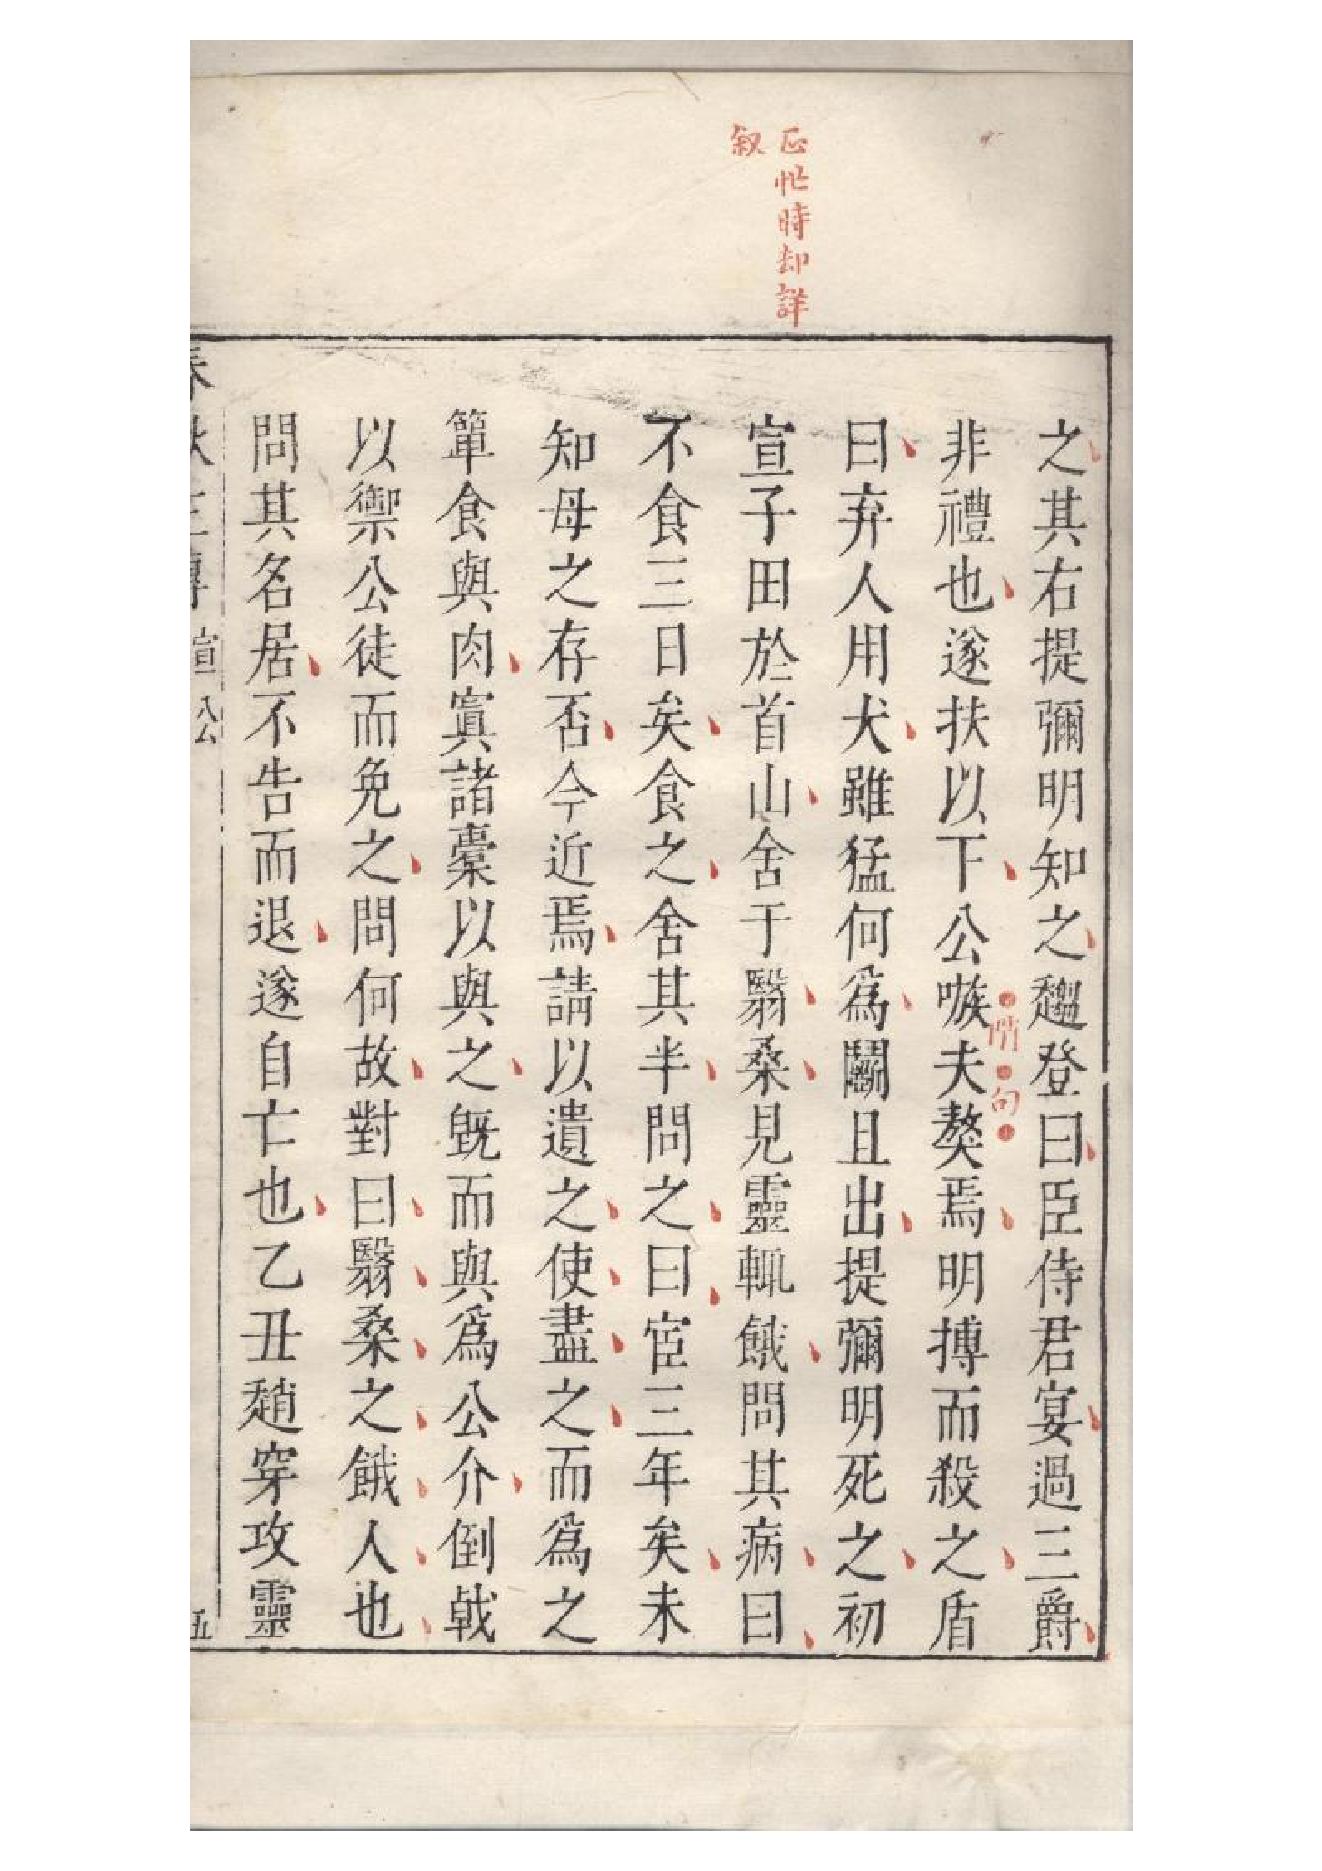 正忙時却詳
叙
之其右提彌明知之趨登曰臣侍君宴過三爵
非禮也遂扶以下公嗾夫獒焉明搏而殺之盾
情句
曰弃人用犬雖猛何爲鬭且出提彌明死之初
宣子田於首山舍于翳桑見靈輒餓問其病曰
不食三日矣食之舍其半問之曰宦三年矣未
知母之存否今近焉請以遺之使盡之而爲之
簞食與肉寘諸橐以與之旣而與爲公介倒戟
以禦公徒而免之問何故對曰翳桑之餓人也
問其名居不告而退遂自亡也乙丑趙穿攻靈
春秋左傳 宣公 五